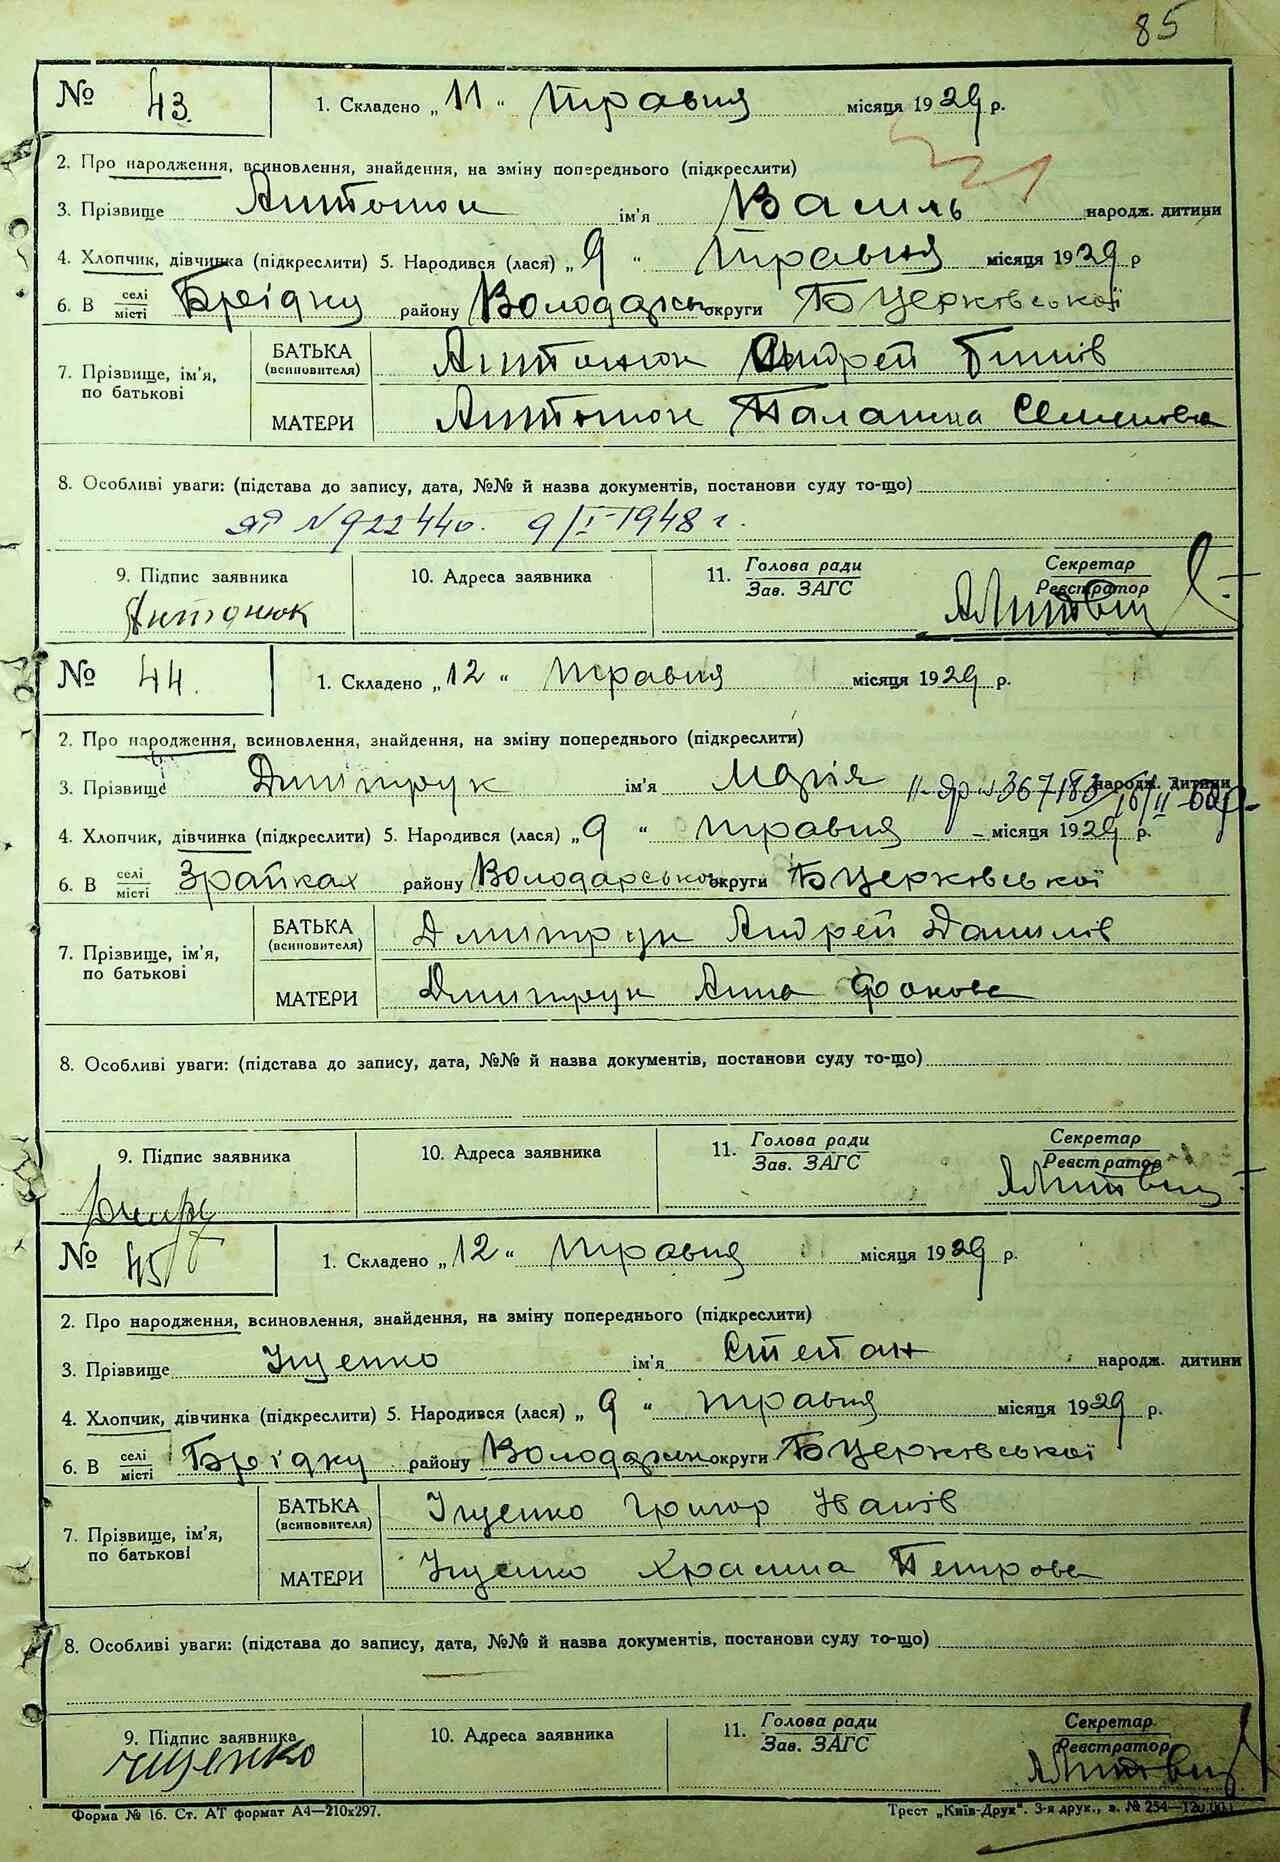 85
№ 43. 1. Складено „11“ травня місяця 1929 р.
2. Про народження, всиновлення, знайдення, на зміну попереднього (підкреслити)
3. Прізвище Антонюк ім'я Василь народж. дитини
4. Хлопчик, дівчинка (підкреслити) 5. Народився (лася) „9“ травня місяця 1929 р
6. В селі місті району округи Б Церківської
7. Прізвище, ім'я, по батькові
БАТЬКА (всиновителя) Антонюк Андрей
МАТЕРИ Антонюк Палашка
8. Особливі уваги: (підстава до запису, дата, №№ й назва документів, постанови суду то-що)
ЯР N 922440. 9/I-1948 г.
9. Підпис заявника 10. Адреса заявника 11. Голова ради Зав. ЗАГС Секретар Реєстратор
Антонюк
№ 44. 1. Складено „12“ травня місяця 1929 р.
2. Про народження, всиновлення, знайдення, на зміну попереднього (підкреслити)
3. Прізвище Дмитрук ім'я Марія народж. дитини
4. Хлопчик, дівчинка (підкреслити) 5. Народився (лася) „9“ травня місяця 1929 р.
6. В селі місті Зрайках району Володарсько округи Б Церківської
7. Прізвище, ім'я, по батькові
БАТЬКА (всиновителя) Дмитрук Андрей Данилів
МАТЕРИ Дмитрук Анна Фокова
8. Особливі уваги: (підстава до запису, дата, №№ й назва документів, постанови суду то-що)
9. Підпис заявника 10. Адреса заявника 11. Голова ради Зав. ЗАГС Секретар Реєстратор
№ 45 1. Складено „12“ травня місяця 1929 р.
2. Про народження, всиновлення, знайдення, на зміну попереднього (підкреслити)
3. Прізвище Іщенко ім'я Степан народж. дитини
4. Хлопчик, дівчинка (підкреслити) 5. Народився (лася) „9“ травня місяця 1929 р.
6. В селі місті району округи Б Церківської
7. Прізвище, ім'я, по батькові
БАТЬКА (всиновителя) Іщенко Григор Іванів
МАТЕРИ Іщенко Петрова
8. Особливі уваги: (підстава до запису, дата, №№ й назва документів, постанови суду то-що)
9. Підпис заявника 10. Адреса заявника 11. Голова ради Зав. ЗАГС Секретар Реєстратор
Іщенко
Форма № 16. Ст. АТ формат А4—210х297. Трест „Київ-Друк“. 3-я друк., з. № 254—